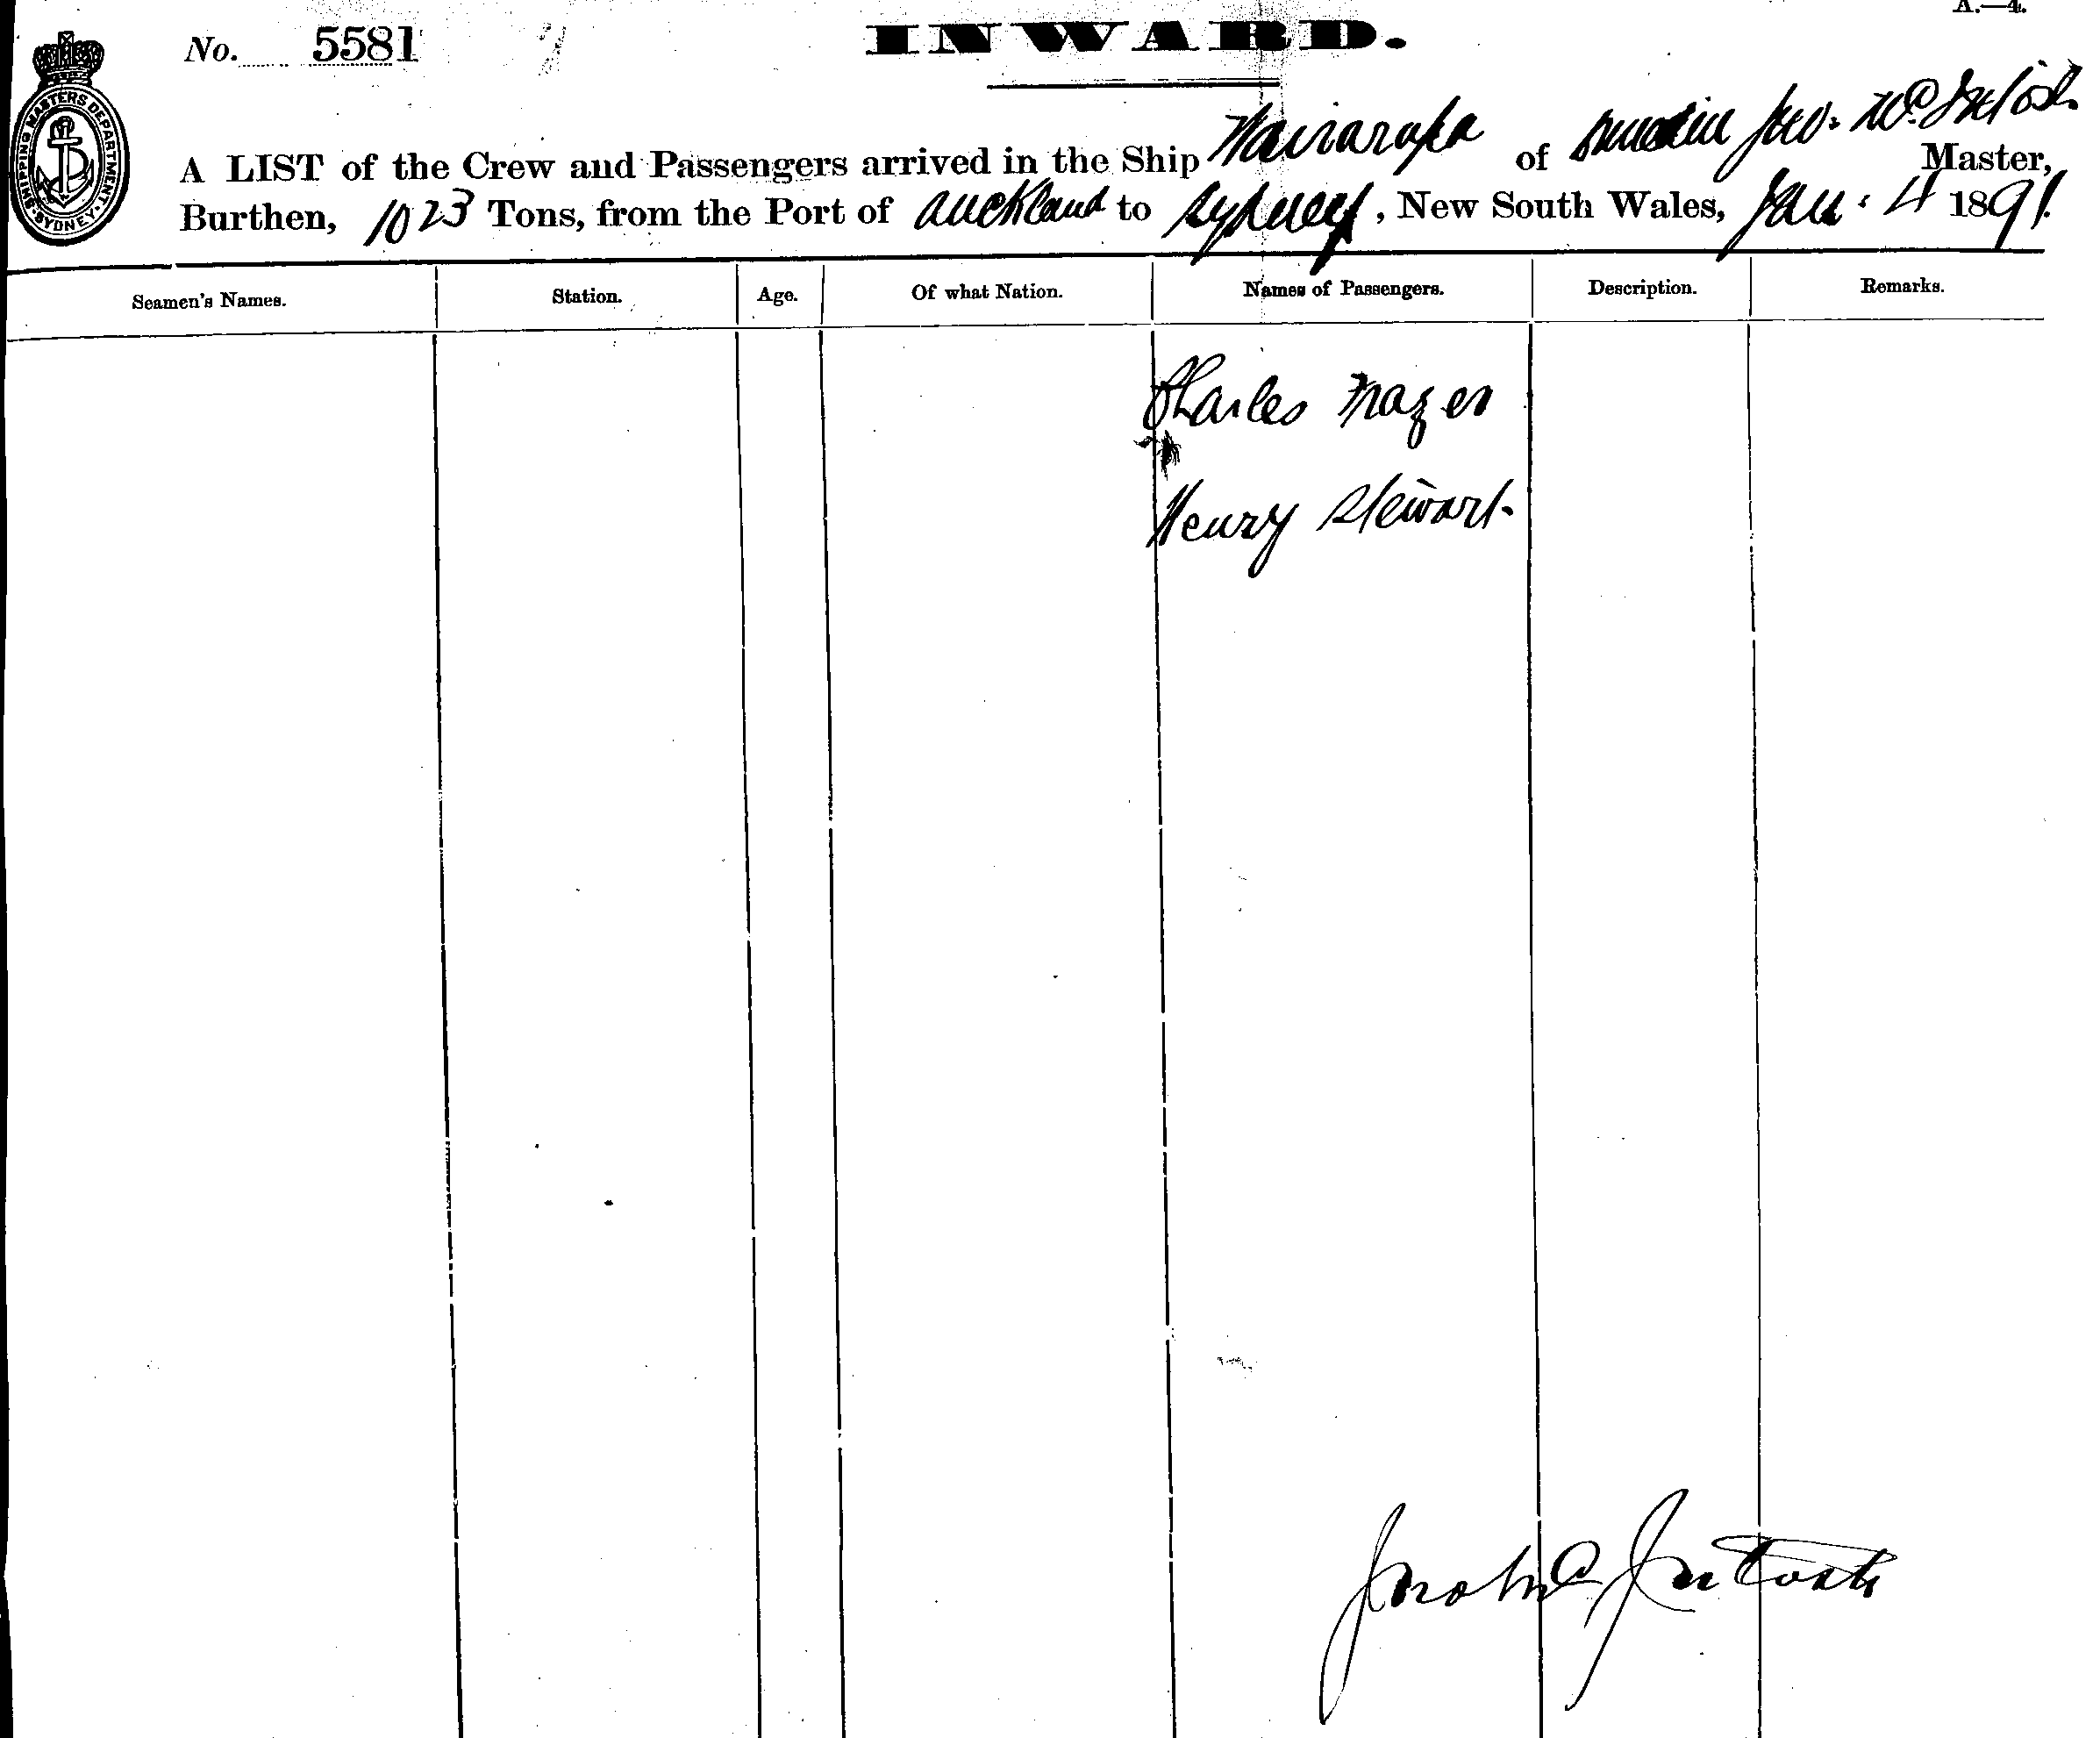 A.—4.
No. 5581
INWARD.
SHIPPING MASTERS DEPARTMENT
SYDNEY
A LIST of the Crew and Passengers arrived in the Ship Wairarapa of Dunedin Jno. McIntosh Master,
Burthen, 1023 Tons, from the Port of Auckland to Sydney, New South Wales, Jan. 4 1891.
Seamen's Names. Station. Age. Of what Nation. Names of Passengers. Description. Remarks.
Charles Frazer
Henry Stewart
Jno McIntosh